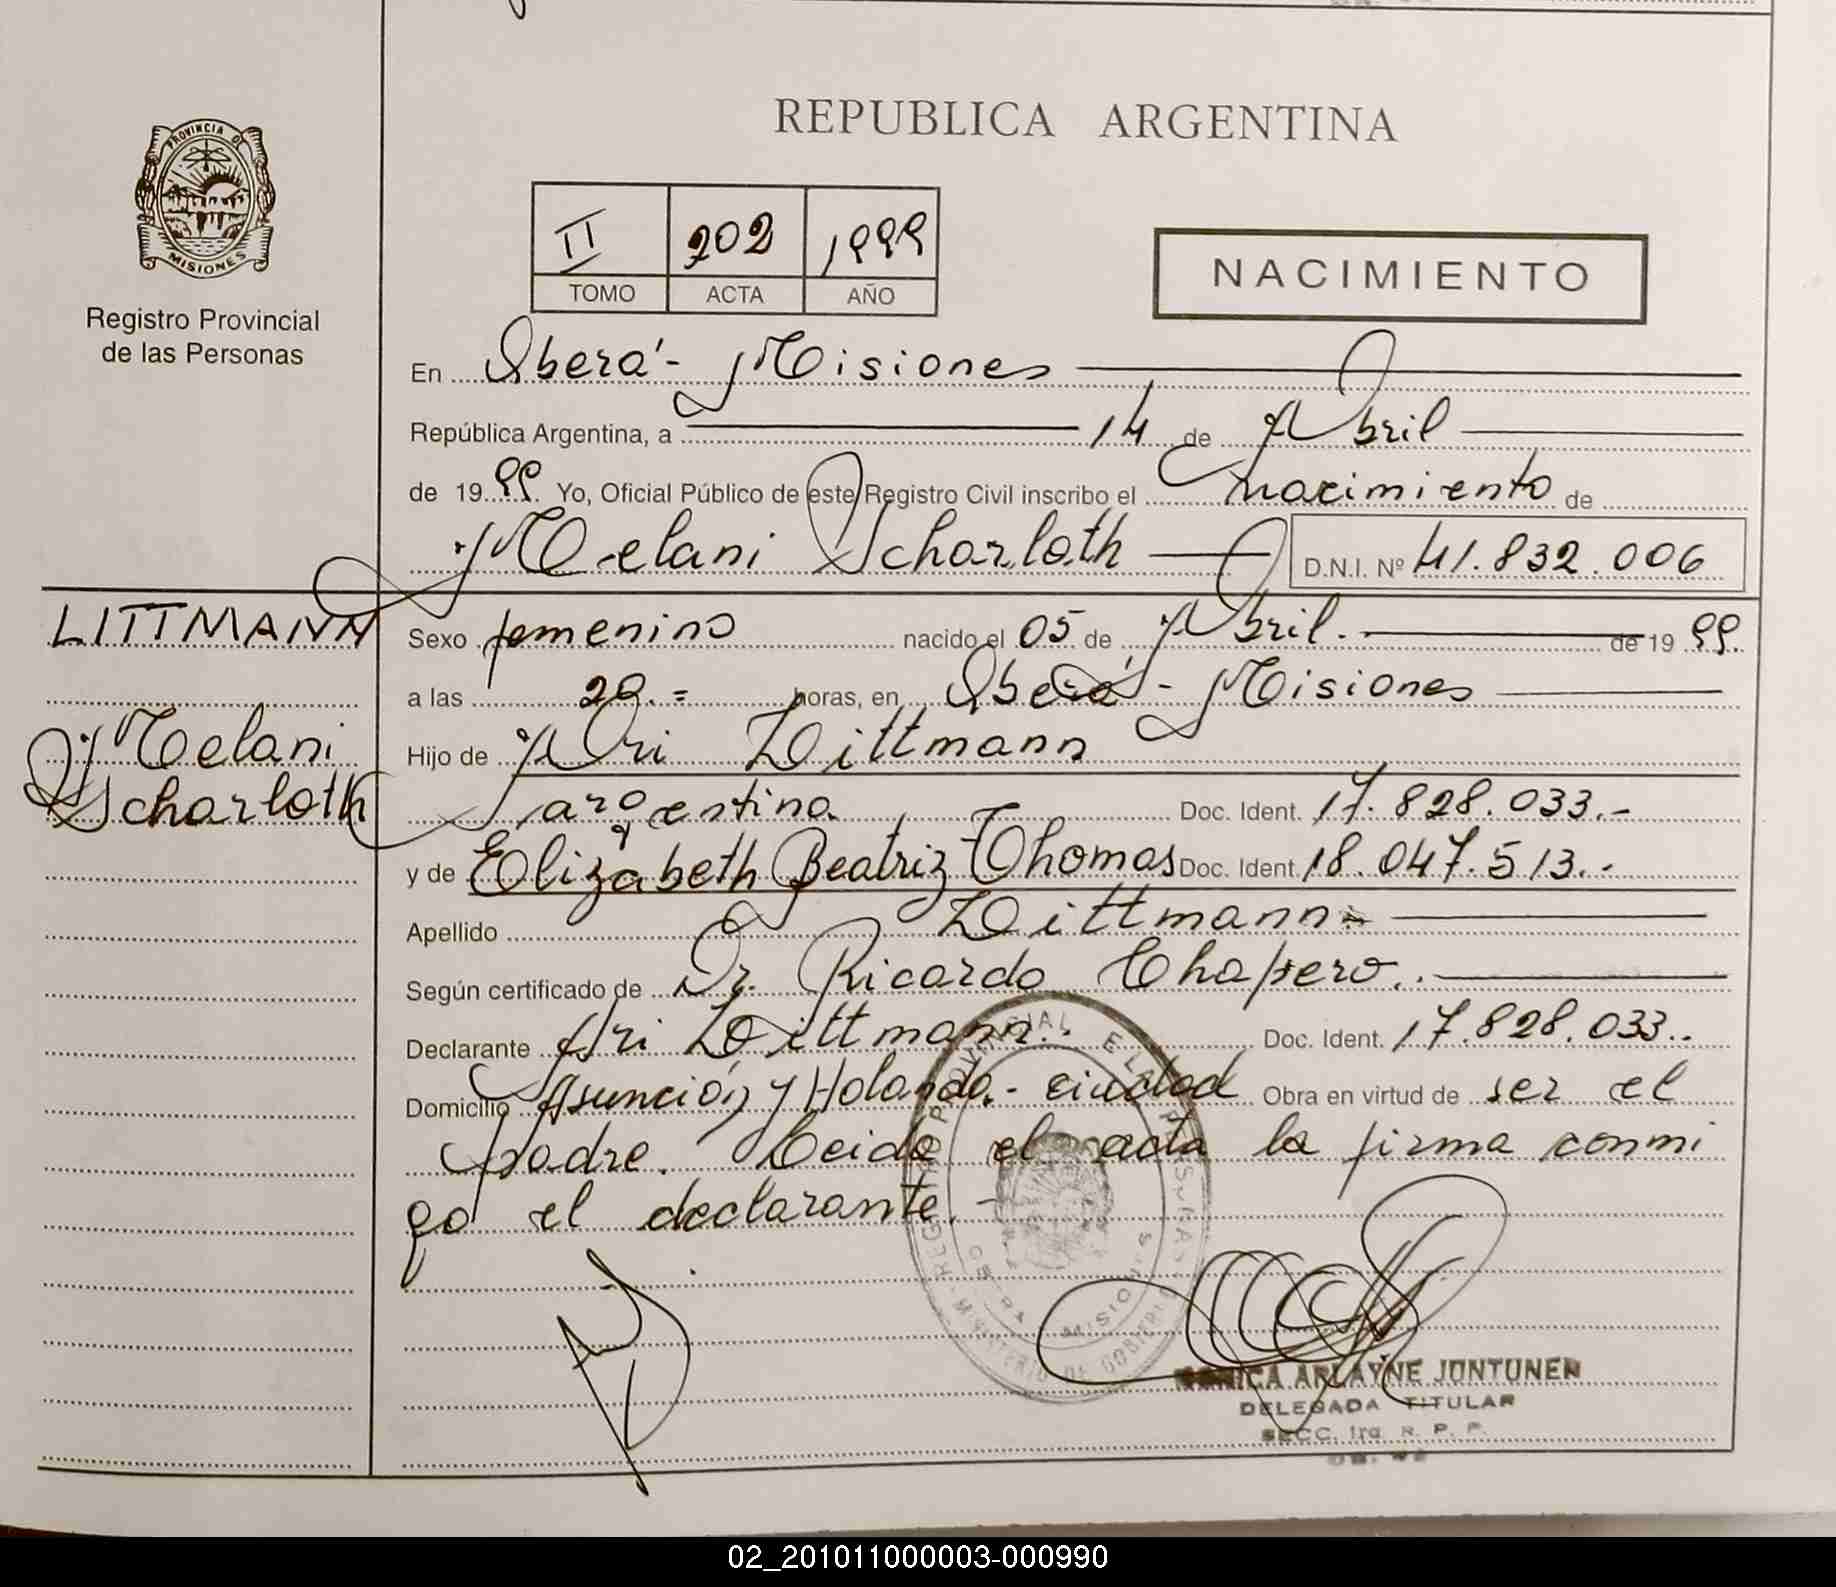 REPUBLICA ARGENTINA
PROVINCIA DE
MISIONES
Registro Provincial
de las Personas
II 202 1999
TOMO ACTA AÑO
NACIMIENTO
En Oberá - Misiones
República Argentina, a 14 de Abril
de 1999. Yo, Oficial Público de este Registro Civil inscribo el nacimiento de
Melani Scharloth D.N.I. Nº 41.832.006
LITTMANN
Melani
Scharloth
Sexo femenino nacido el 05 de Abril. de 1999.
a las 20.= horas, en Oberá - Misiones
Hijo de Ari Littmann
argentina. Doc. Ident. 17.828.033.-
y de Elizabeth Beatriz Thomas Doc. Ident. 18.047.513.-
Apellido Littmann-
Según certificado de Dr. Ricardo Chapero.
Declarante Ari Littmann. Doc. Ident. 17.828.033..
Domicilio Asunción y Holanda.- ciudad Obra en virtud de ser el
padre. Leida el acta la firma conmi
go el declarante.-
REGISTRO PROVINCIAL DE LAS PERSONAS
MINISTERIO DE GOBIERNO
OBERA MISIONES
ARLAYNE JONTUNEN
DELEGADA TITULAR
SECC. 1ra R. P. P.
02_201011000003-000990